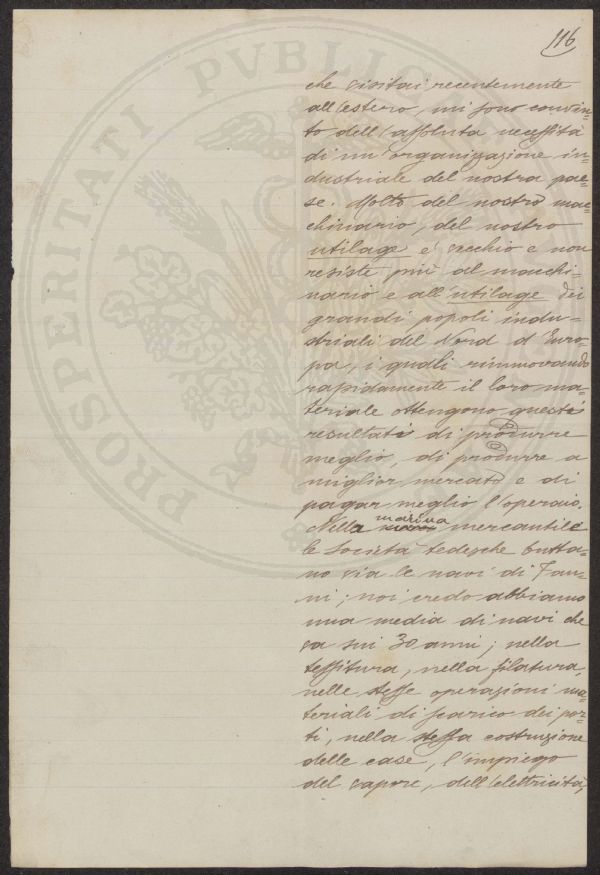 116
che visitai recentemente
all'estero, mi sono convin=
to dell'assoluta necessità
di un'organizzazione in=
dustriale del nostro pae=
se. Molto del nostro mac=
chinario, del nostro
utilage è vecchio e non
resiste più al macchi=
nario e all'utilage dei
grandi popoli indu=
striali del Nord d'Euro=
pa, i quali rinnovando
rapidamente il loro ma=
teriale ottengono questi
resultati di produrre
meglio, di produrre a
miglior mercato e di
pagar meglio l'operaio.
Nella marina mercantile
le Società tedesche butta=
no via le navi di 7 an=
ni; noi credo abbiamo
una media di navi che
va sui 30 anni; nella
tessitura, nella filatura,
nelle stesse operazioni ma=
teriali di scarico dei por=
ti, nella stessa costruzione
delle case, l'impiego
del vapore, dell'elettricità,
PROSPERITATI PVBLICAE